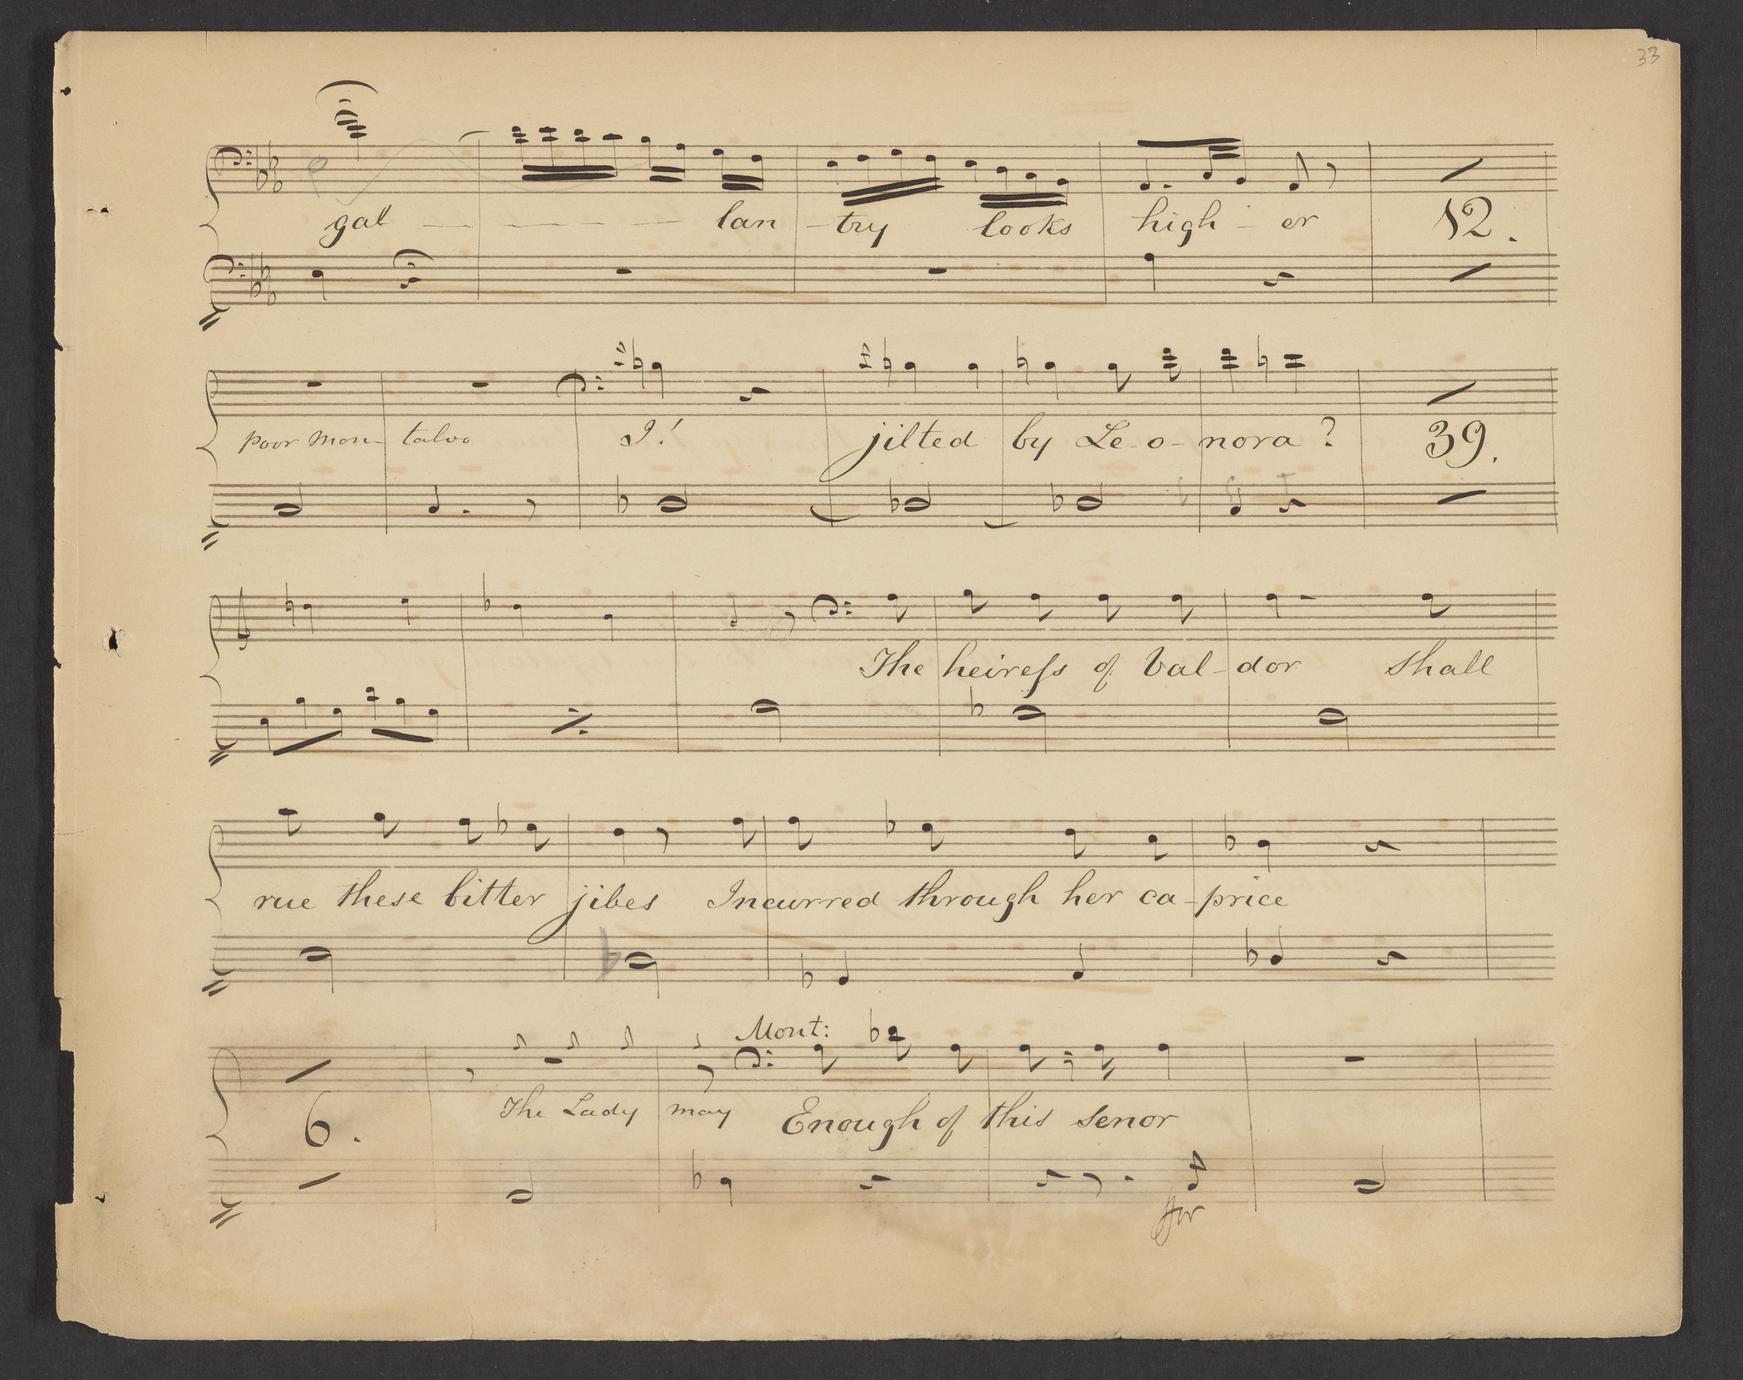 33
gal - - - - - lan - try looks high - er 12.
poor Mon- talvo I! jilted by Le-o-nora? 39.
The heireſs of Val-dor shall
rue these bitter jibes Incurred through her ca-price
Mont:
6. The Lady may Enough of this senor